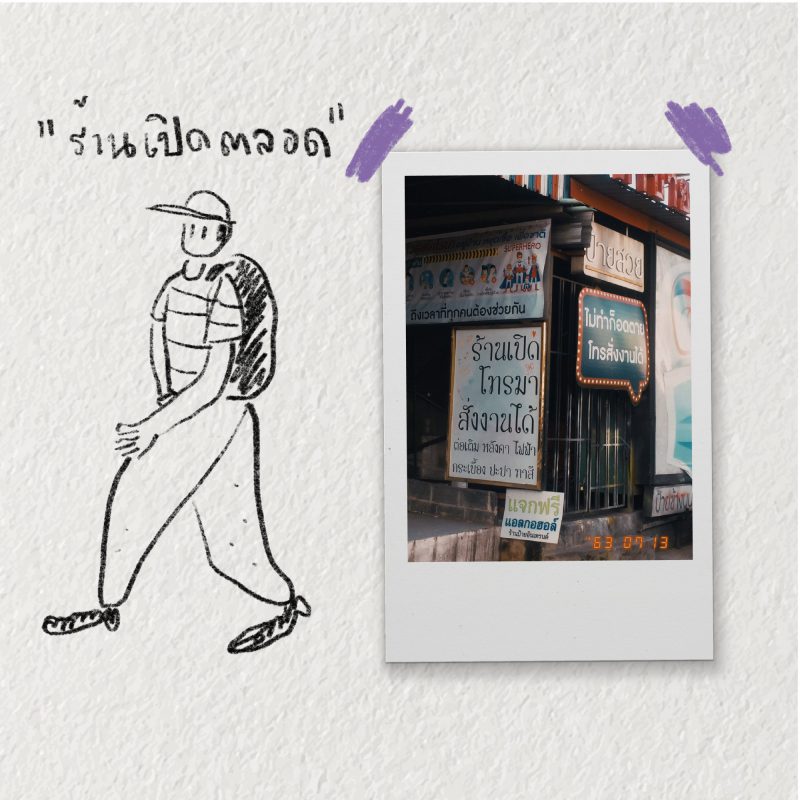 "ร้านเปิดตลอด"
SUPERHERO
ถึงเวลาที่ทุกคนต้องช่วยกัน
ป้ายสวย
ไม่ทำก็อดตาย
โทรสั่งงานได้
ร้านเปิด
โทรมา
สั่งงานได้
ต่อเติม หลังคา ไฟฟ้า
กระเบื้อง ปะปา ทาสี
แจกฟรี
แอลกอฮอล์
'63 07 13